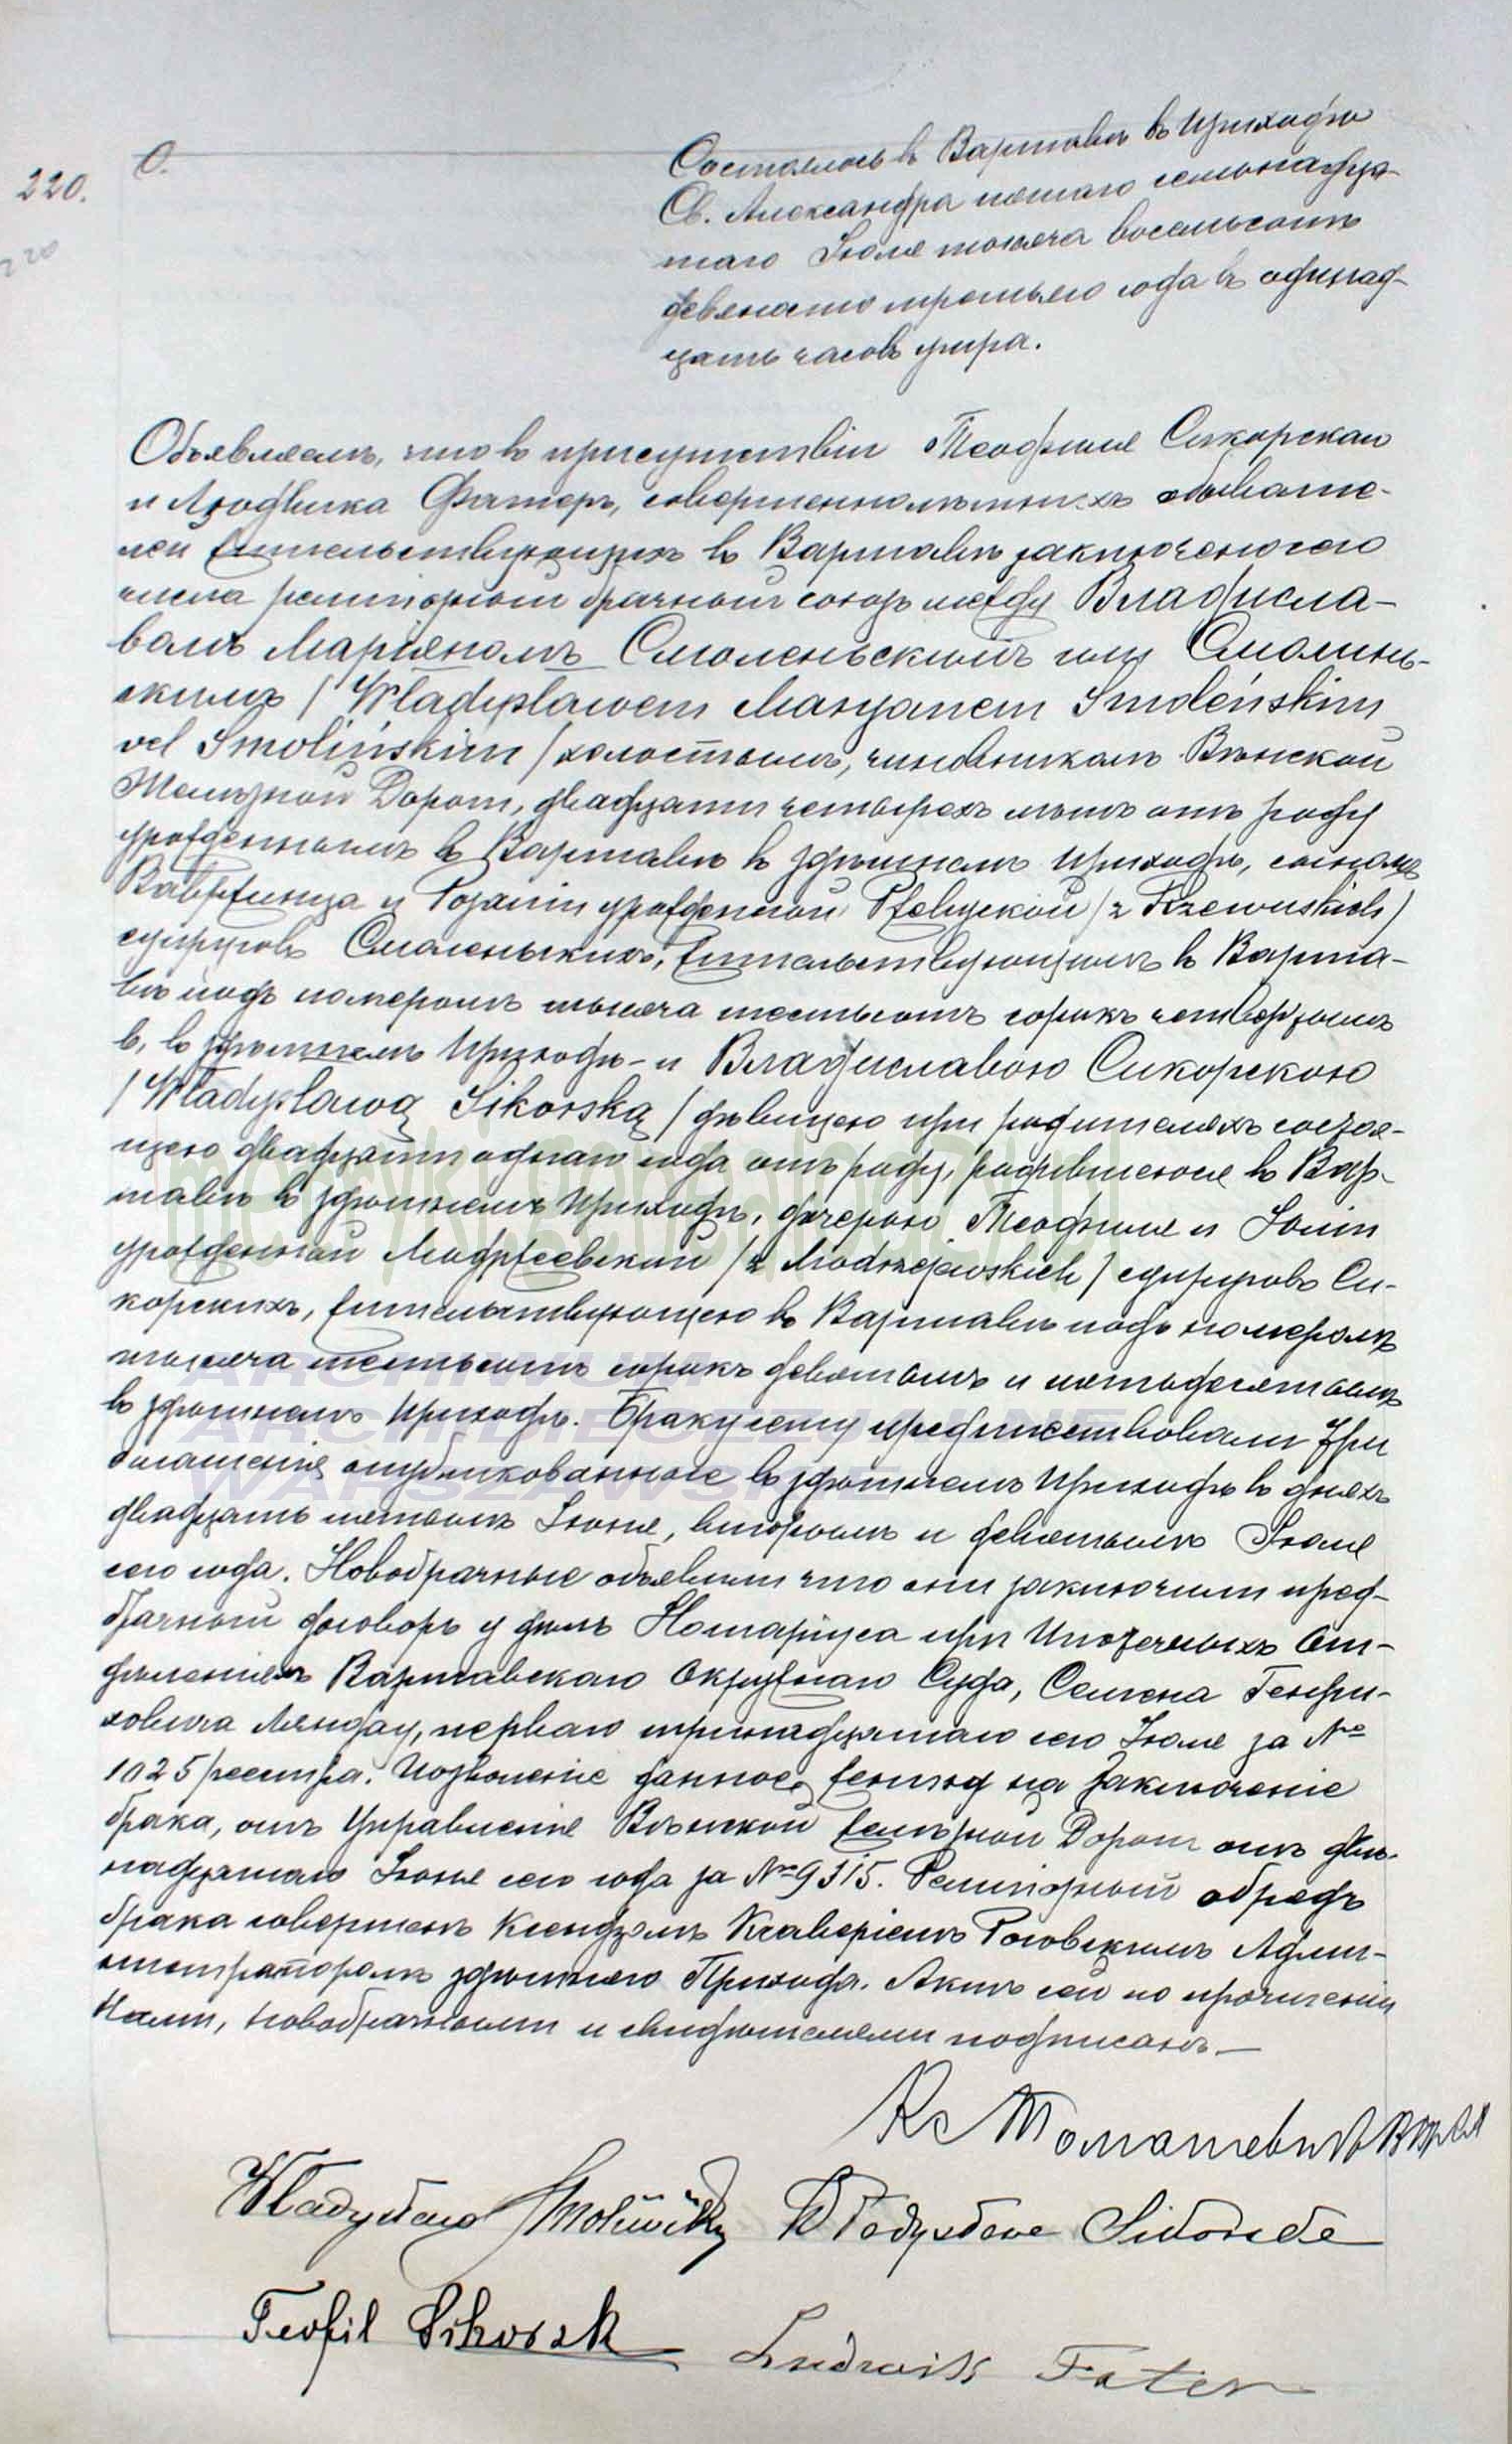 220.
O.
220
Состоялось въ Варшавѣ въ Приходѣ
Св. Александра пятаго семьнадца-
таго Іюля тысяча восемьсотъ
девяносто третьяго года въ одинад-
цать часовъ утра.
Объявляемъ, что въ присутствіи Теофиля Сикорскаго
и Людвика Фатеръ, совершеннолѣтнихъ обывате-
лей жительствующихъ въ Варшавѣ заключенъ сего
числа религіозный брачный союзъ между Владисла-
вомъ Маріяномъ Смоленьскимъ или Смолинь-
скимъ / Władysławem Maryanem Smoleńskim
vel Smolińskim / холостымъ, чиновникомъ Вѣнской
Желѣзной Дороги, двадцати четырехъ лѣтъ отъ роду
урожденнымъ въ Варшавѣ въ здѣшнемъ Приходѣ, сыномъ
Вавржинца и Розаліи урожденной Ржевуской / z Rzewuskich /
супруговъ Смоленьскихъ, жительствующимъ въ Варша-
вѣ подъ номеромъ тысяча шестьсотъ сорокъ четвертымъ
в, въ здѣшнемъ Приходѣ – и Владиславою Сикорскою
/ Władysławą Sikorską / дѣвицею при родителяхъ состоя-
щею двадцати одного года отъ роду, родившеюся въ Вар-
шавѣ въ здѣшнемъ Приходѣ, дочерью Теофиля и
урожденной Моджеевской / z Modrzejewskich / супруговъ Си-
корскихъ, жительствующею въ Варшавѣ подъ номеромъ
тысяча шестьсотъ сорокъ девятымъ и пятьдесятымъ
въ здѣшнемъ Приходѣ. Браку сему предшествовали три
оглашенія опубликованные въ здѣшнемъ Приходѣ въ дняхъ
двадцать пятомъ Іюня, второмъ и девятомъ Іюля
сего года. Новобрачные объявили что они заключили пред-
брачный договоръ у дѣлъ Нотаріуса при Ипотечныхъ От-
дѣленіяхъ Варшавскаго Окружнаго Суда, Семена Генри-
ховича Ляндау, перваго тринадцатаго сего Іюля за №
1025 реестра. Позволеніе данное жениху на заключеніе
брака, отъ Управленія Вѣнской желѣзной Дороги отъ двѣ-
надцатаго Іюня сего года за № 9315. Религіозный обрядъ
брака совершенъ Ксендзомъ Ксаверіемъ Роговскимъ Адми-
нистраторомъ здѣшняго Прихода. Актъ сей по прочтеніи
Нами, новобрачными и свидѣтелями подписанъ.—
Кс Томашевичъ
Władysław Smoliński Władysława Sikorska
Teofil Sikorski Ludwik Fater